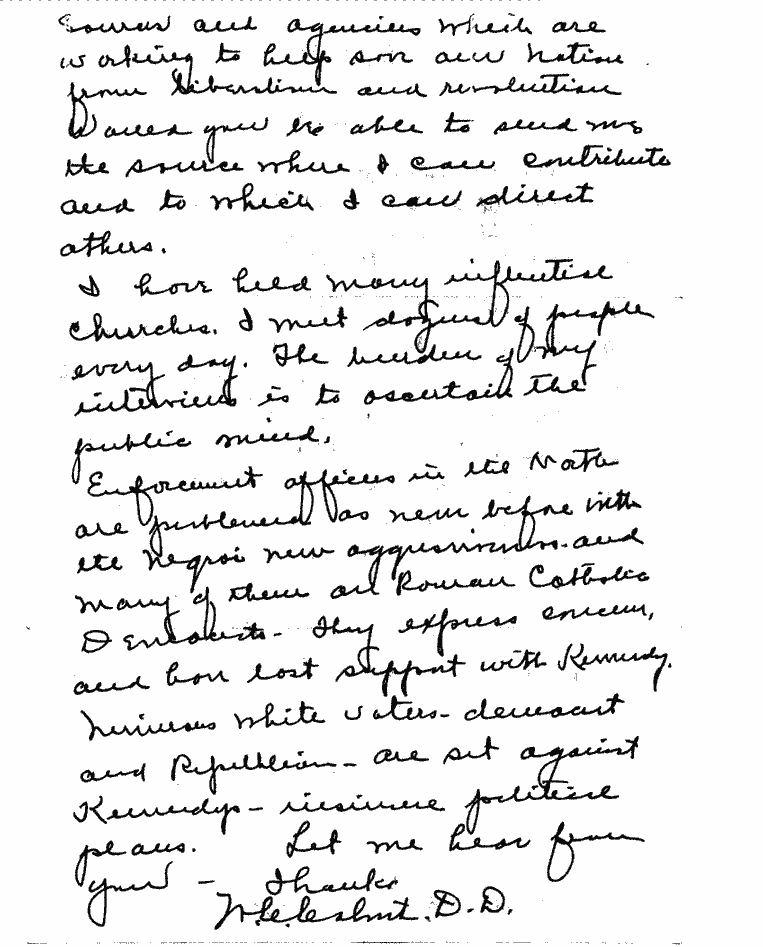 sources and agencies which are
working to help save our nation
from liberalism and revolution
Would you be able to send me
the source where I can contribute
and to which I can direct
others.
I have held many influential
churches. I meet dozens of people
every day. The burden of my
interviews is to ascertain the
public mind.
Enforcement officers in the North
are as never before with
the negro's new aggressiveness. and
many of them are Roman Catholic
Democrats - They express concern,
and have lost support with Kennedy.
Numerous white voters - democrat
and Republican - are set against
Kennedys - insincere political
plans. Let me hear from
you - Thanks
D.D.